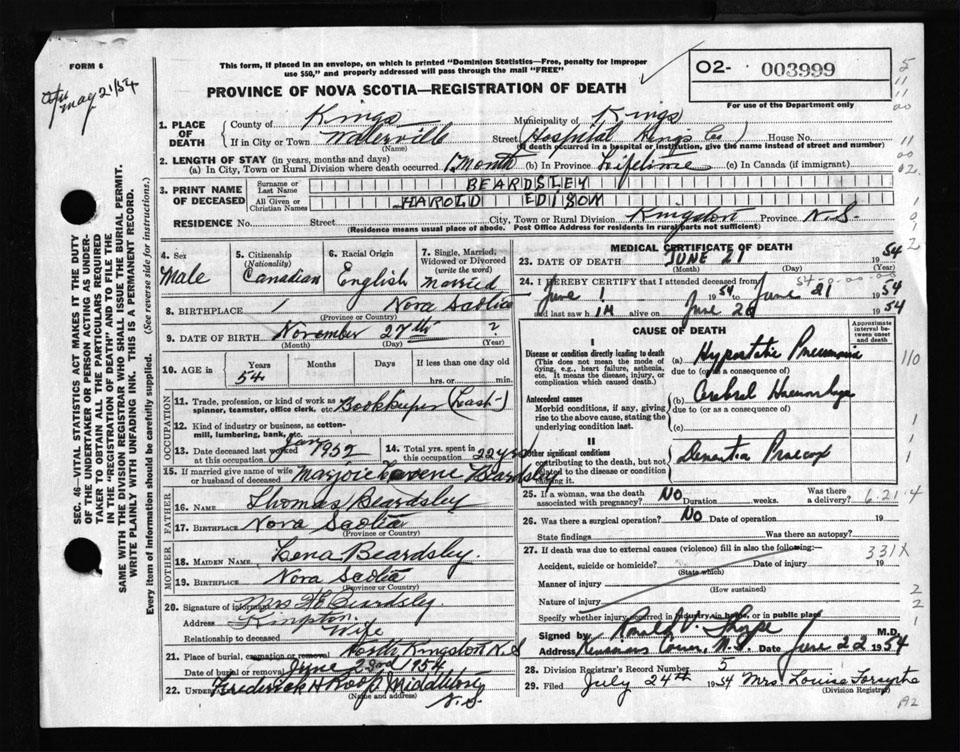 FORM 6
This form, if placed in an envelope, on which is printed "Dominion Statistics—Free, penalty for improper
use $50," and properly addressed will pass through the mail "FREE"
PROVINCE OF NOVA SCOTIA—REGISTRATION OF DEATH
O2- 003999
For use of the Department only
May 21/54
SEC. 46—VITAL STATISTICS ACT MAKES IT THE DUTY
OF THE UNDERTAKER OR PERSON ACTING AS UNDER-
TAKER TO OBTAIN ALL THE PARTICULARS REQUIRED
IN THE "REGISTRATION OF DEATH" AND TO FILE THE
SAME WITH THE DIVISION REGISTRAR WHO SHALL ISSUE THE BURIAL PERMIT.
WRITE PLAINLY WITH UNFADING INK. THIS IS A PERMANENT RECORD.
Every item of information should be carefully supplied. (See reverse side for instructions.)
1. PLACE OF DEATH
County of Kings Municipality of Kings
If in City or Town Waterville Street (Hospital Kings Co) House No.
(Name) (If death occurred in a hospital or institution, give the name instead of street and number)
2. LENGTH OF STAY (in years, months and days)
(a) In City, Town or Rural Division where death occurred 1 month (b) In Province Lifetime (c) In Canada (if immigrant)
3. PRINT NAME OF DECEASED
Surname or Last Name BEARDSLEY
All Given or Christian Names HAROLD EDISON
RESIDENCE No. Street City, Town or Rural Division Kingston Province N.S.
(Residence means usual place of abode. Post Office Address for residents in rural parts not sufficient)
4. Sex Male
5. Citizenship (Nationality) Canadian
6. Racial Origin English
7. Single, Married, Widowed or Divorced (write the word) Married
8. BIRTHPLACE Nova Scotia
(Province or Country)
9. DATE OF BIRTH November 27th ?
(Month) (Day) (Year)
10. AGE in Years 54 Months Days If less than one day old
hrs. or min.
OCCUPATION
11. Trade, profession or kind of work as spinner, teamster, office clerk, etc. Bookkeeper (Last-)
12. Kind of industry or business, as cotton-mill, lumbering, bank, etc.
13. Date deceased last worked at this occupation Jan 1952
14. Total yrs. spent in this occupation 22 yrs
15. If married give name of wife or husband of deceased Marjorie Beardsley
FATHER
16. Name Thomas Beardsley
17. Birthplace Nova Scotia
(Province or Country)
MOTHER
18. MAIDEN NAME Lena Beardsley.
19. BIRTHPLACE Nova Scotia
(Province or Country)
20. Signature of informant Mrs H E Beardsley.
Address Kingston.
Relationship to deceased Wife
21. Place of burial, cremation or removal North Kingston N.S
Date of burial or removal June 23rd 1954
22. UNDERTAKER Frederick H Roop Middleton
N.S.
(Name and address)
MEDICAL CERTIFICATE OF DEATH
23. DATE OF DEATH JUNE 21 1954
(Month) (Day) (Year)
24. I HEREBY CERTIFY that I attended deceased from
June 1 1954 to June 21 1954
and last saw him alive on June 20 1954
CAUSE OF DEATH
Approximate interval between onset and death
I
Disease or condition directly leading to death
(This does not mean the mode of dying, e.g., heart failure, asthenia, etc. It means the disease, injury, or complication which caused death.)
(a) Hypostatic Pneumonia
due to (or as a consequence of)
Antecedent causes
Morbid conditions, if any, giving rise to the above cause, stating the underlying condition last.
(b) Cerebral Haemorrhage
due to (or as a consequence of)
(c)
II
Other significant conditions
contributing to the death, but not related to the disease or condition causing it.
Dementia Praecox
25. If a woman, was the death associated with pregnancy? No Duration weeks. Was there a delivery?
6.21.4
26. Was there a surgical operation? No Date of operation 19
State findings Was there an autopsy?
27. If death was due to external causes (violence) fill in also the following:—
331X
Accident, suicide or homicide? Date of injury 19
(State which)
Manner of injury
(How sustained)
Nature of injury
Specify whether injury occurred in industry, in home, or in public place
Signed by M.D.
Address N.S. Date June 22 1954
28. Division Registrar's Record Number 5
29. Filed July 24th 1954 Mrs. Louise Forsythe
(Division Registrar)